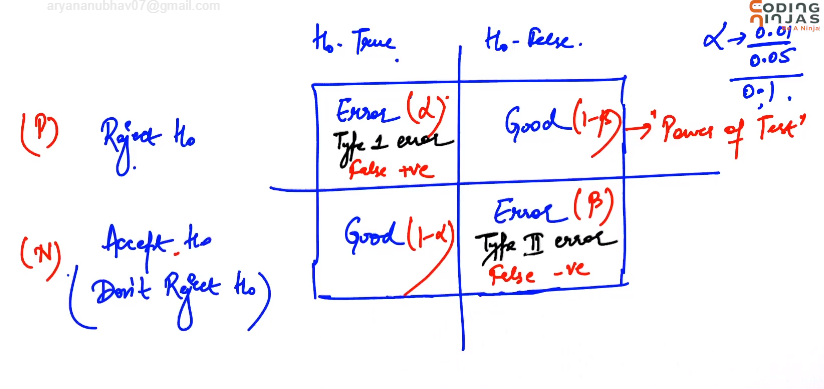 aryananubhav07@gmail.com
CODING
NINJAS
H₀ - True.
H₀ - False.
α → 0.01
0.05
0.1.
(P)
Reject H₀
Error (α)
Type 1 error
False +ve
Good (1-β) → "Power of Test"
(N)
Accept H₀
(Don't Reject H₀)
Good (1-α)
Error (β)
Type II error
False -ve